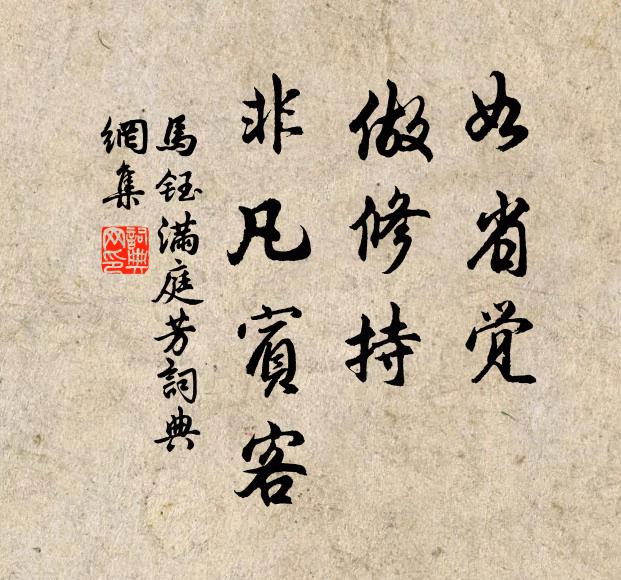 如省觉
做修持
非凡賓客
馬鈺滿庭芳詞典
網集
詞典
网印